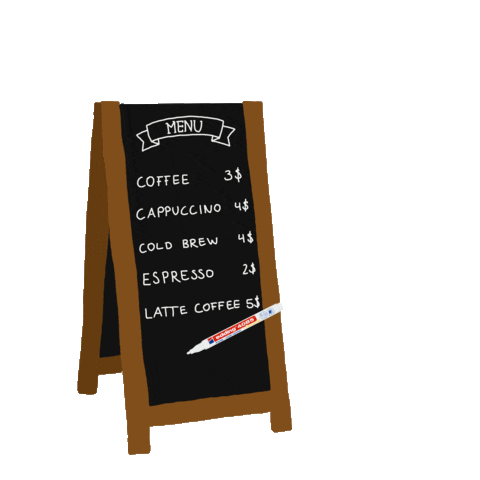 MENU
COFFEE 3$
CAPPUCCINO 4$
COLD BREW 4$
ESPRESSO 2$
LATTE COFFEE 5$
edding 4085